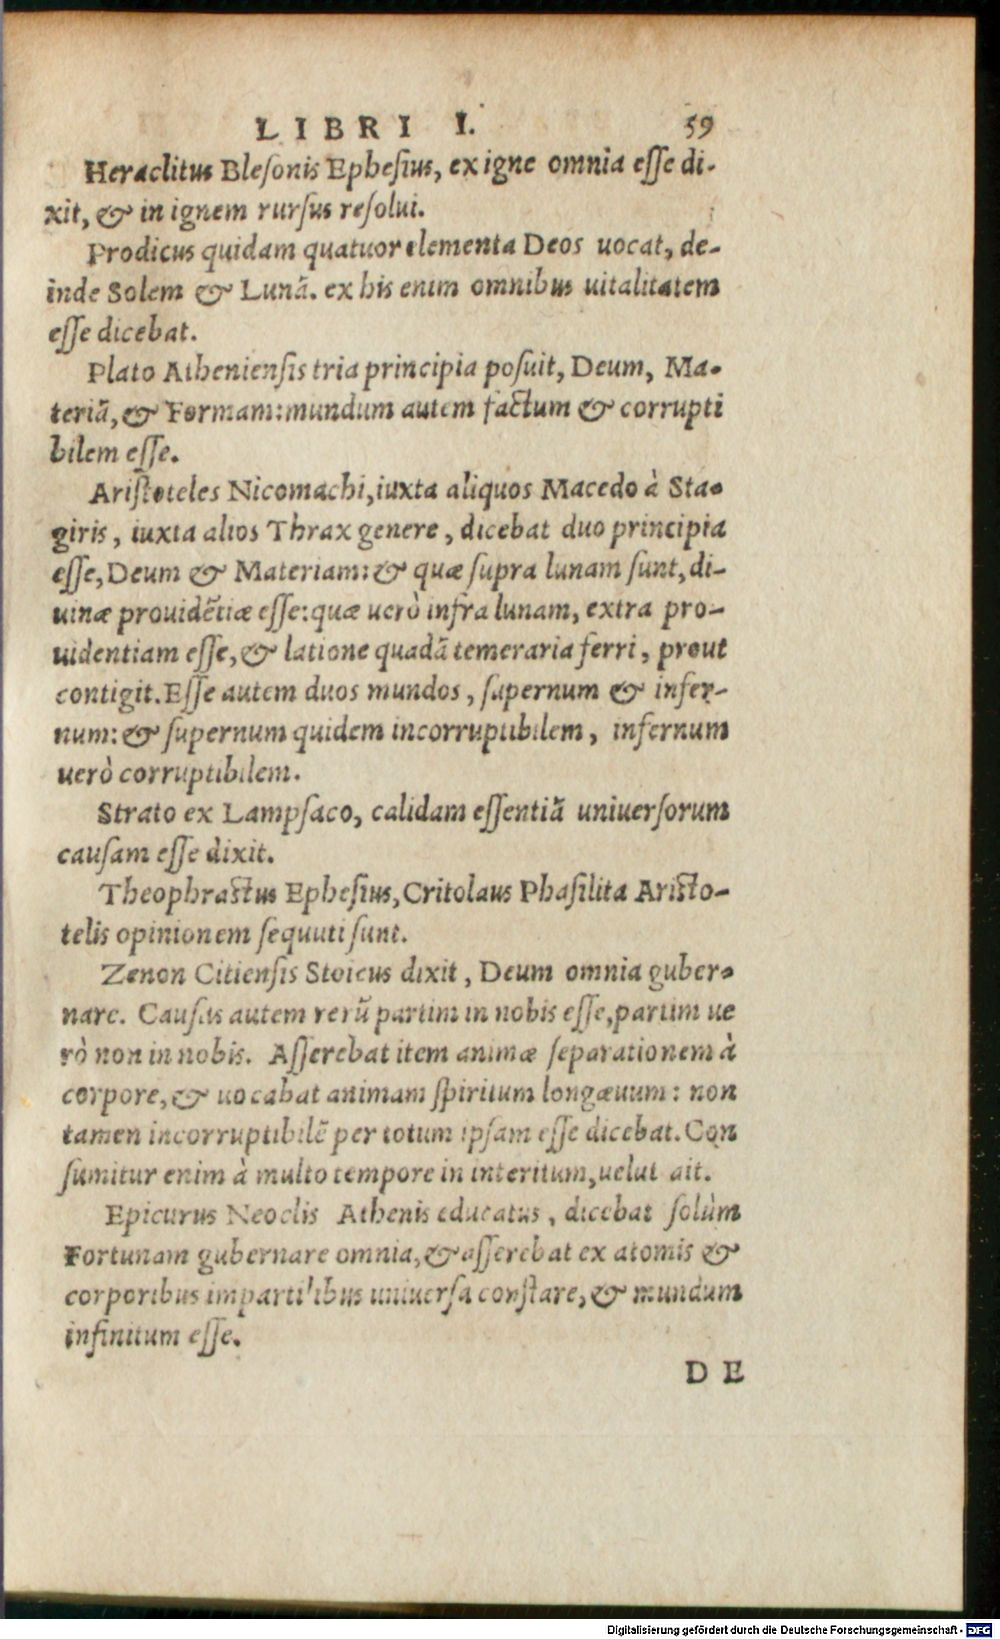 LIBRI I. 59
Heraclitus Blesonis Ephesius, ex igne omnia esse di-
xit, & in ignem rursus resolui.
Prodicus quidam quatuor elementa Deos uocat, de-
inde Solem & Lunã. ex his enim omnibus uitalitatem
esse dicebat.
Plato Atheniensis tria principia posuit, Deum, Ma-
teriã, & Formam: mundum autem factum & corrupti
bilem esse.
Aristoteles Nicomachi, iuxta aliquos Macedo à Sta-
giris, iuxta alios Thrax genere, dicebat duo principia
esse, Deum & Materiam: & quæ supra lunam sunt, di-
uinæ prouidẽtiæ esse: quæ uerò infra lunam, extra pro-
uidentiam esse, & latione quadã temeraria ferri, prout
contigit. Esse autem duos mundos, supernum & infer-
num: & supernum quidem incorruptibilem, infernum
uerò corruptibilem.
Strato ex Lampsaco, calidam essentiã uniuersorum
causam esse dixit.
Theophractus Ephesius, Critolaus Phasilita Aristo-
telis opinionem sequuti sunt.
Zenon Citiensis Stoicus dixit, Deum omnia guber-
nare. Causas autem rerũ partim in nobis esse, partim ue
rò non in nobis. Asserebat item animæ separationem à
corpore, & uocabat animam spiritum longæuum: non
tamen incorruptibilẽ per totum ipsam esse dicebat. Con
sumitur enim à multo tempore in interitum, uelut ait.
Epicurus Neoclis Athenis educatus, dicebat solùm
Fortunam gubernare omnia, & asserebat ex atomis &
corporibus impartilibus uniuersa constare, & mundum
infinitum esse.
DE
Digitalisierung gefördert durch die Deutsche Forschungsgemeinschaft - DFG